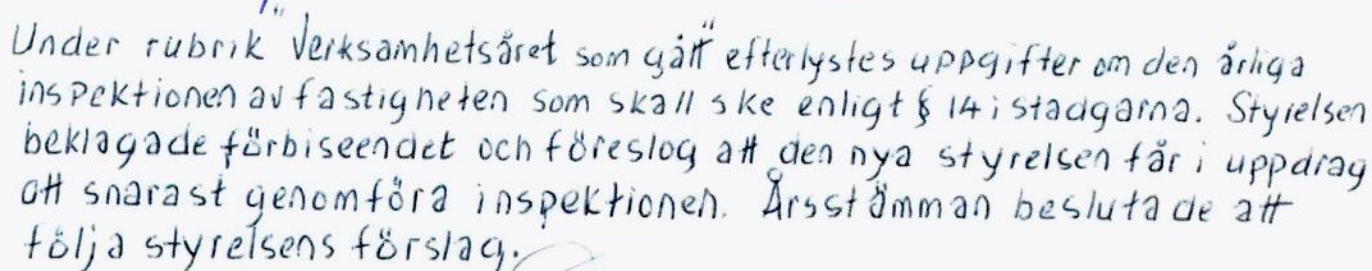 Under rubrik "Verksamhetsåret som gått" efterlystes uppgifter om den årliga
inspektionen av fastigheten som skall ske enligt § 14 i stadgarna. Styrelsen
beklagade förbiseendet och föreslog att den nya styrelsen får i uppdrag
att snarast genomföra inspektionen. Årsstämman beslutade att
följa styrelsens förslag.